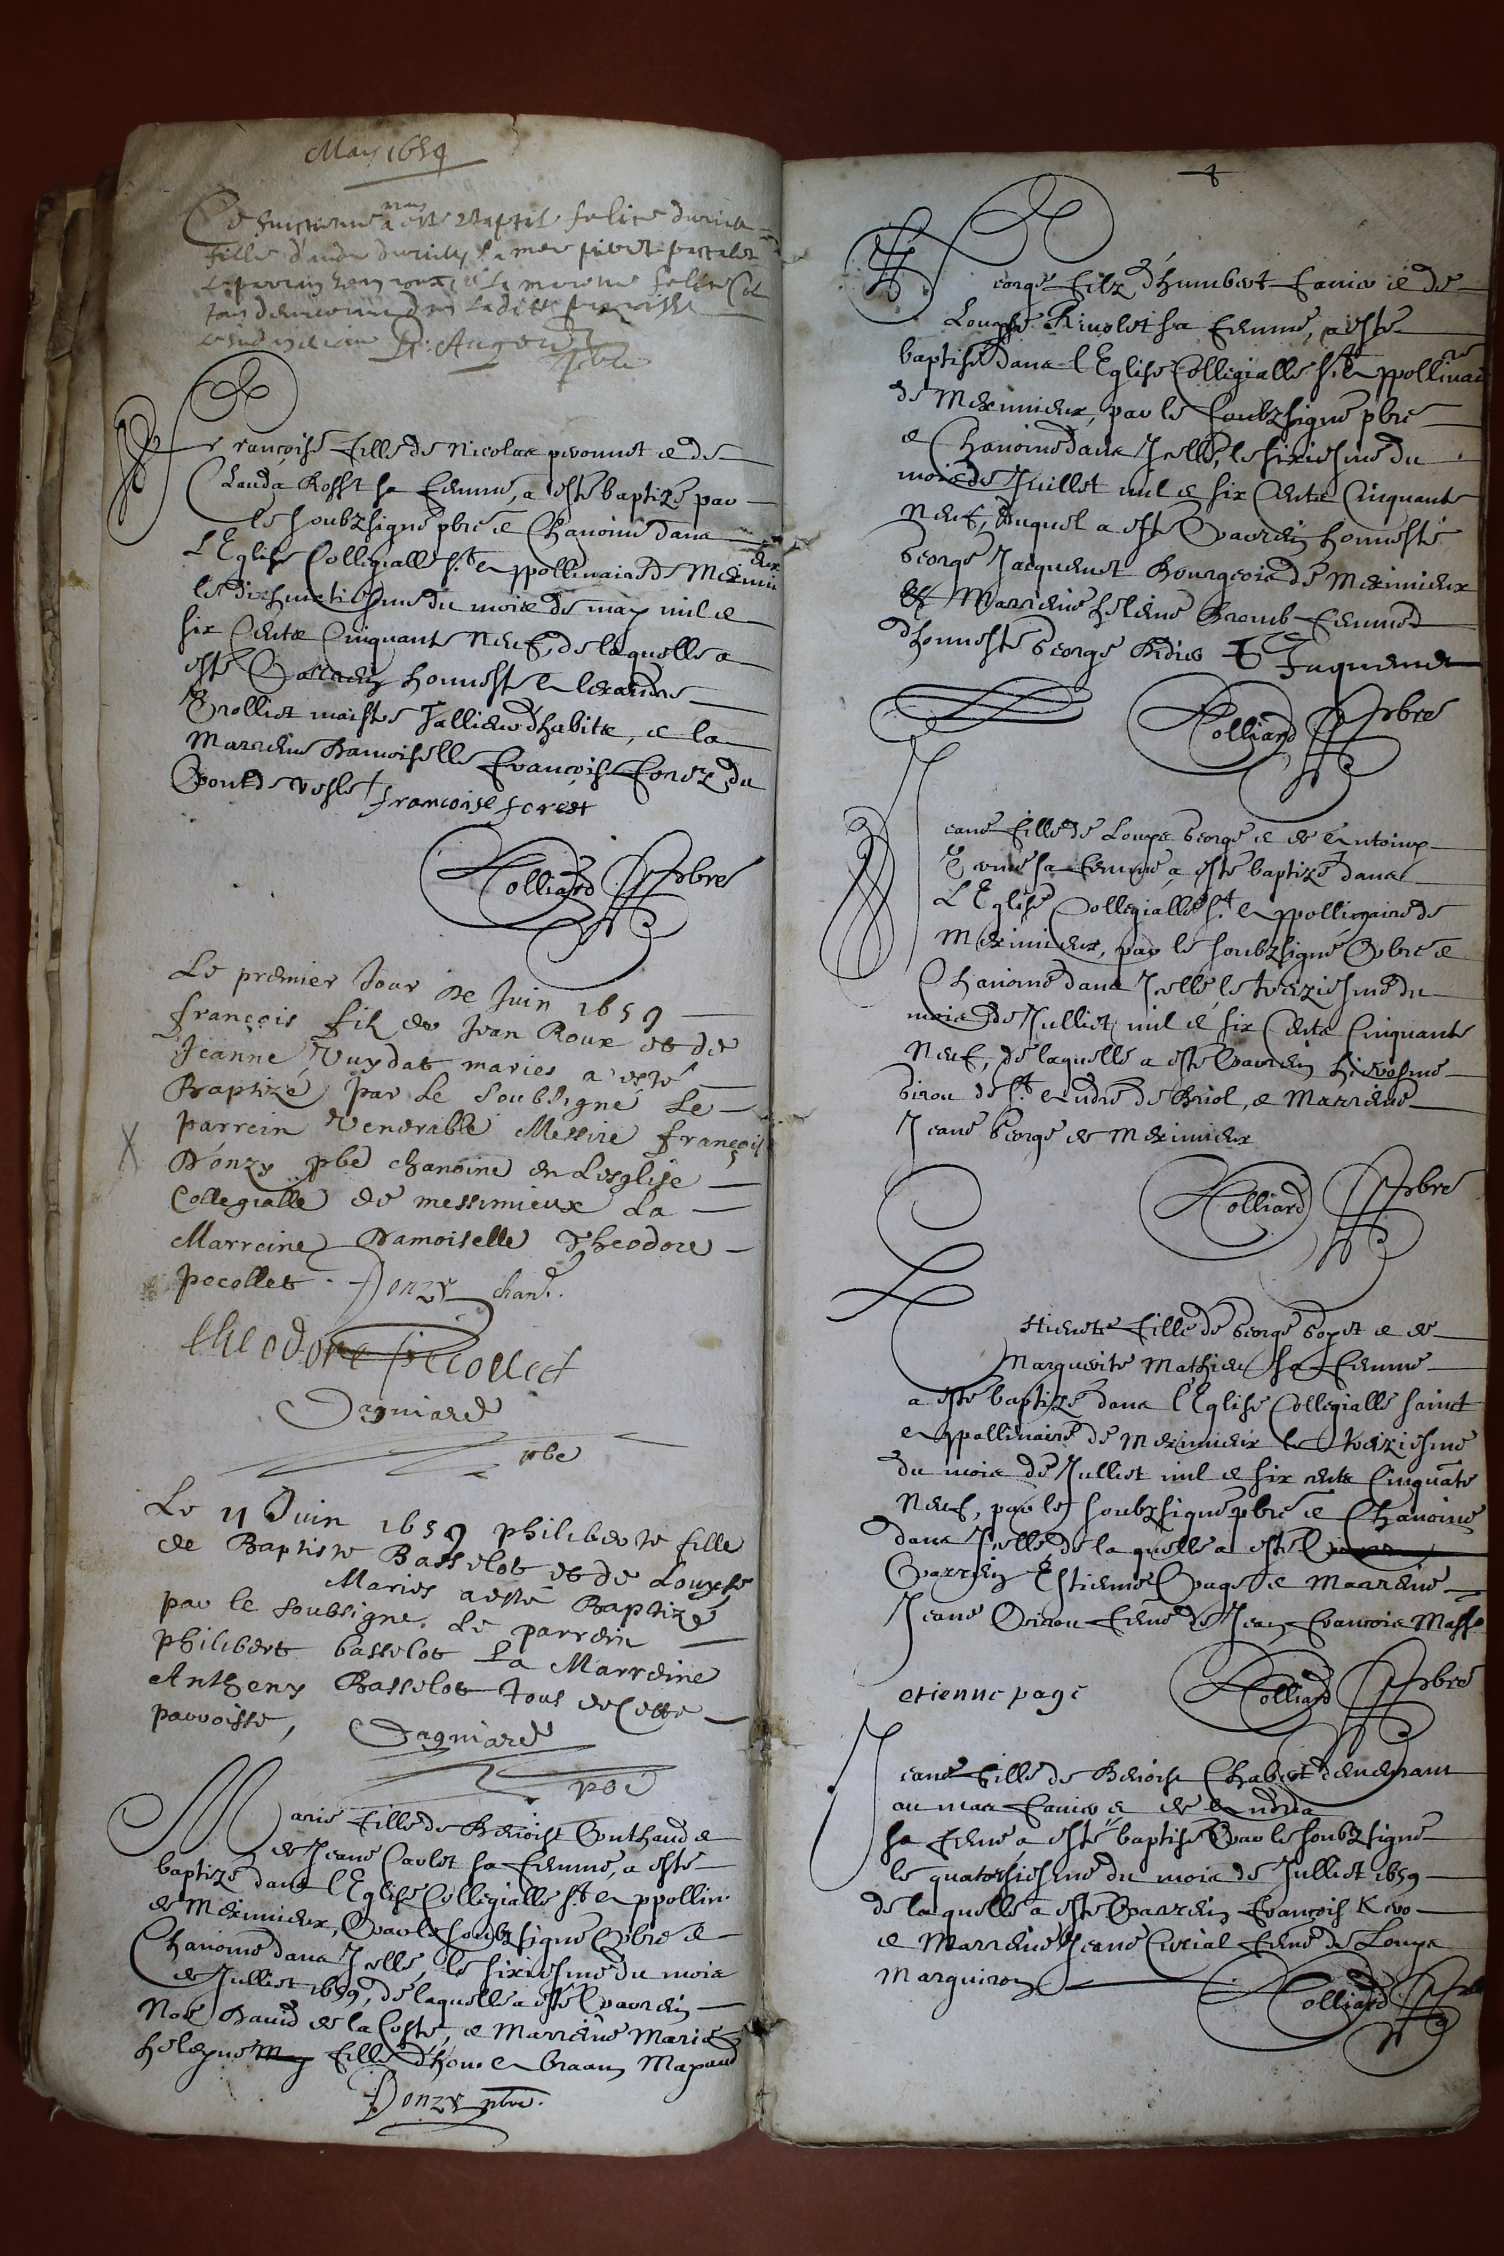 May 1659
Ce huictieme may a esté Baptisé felice
fille d'andre
Le parrain la marenne felice
tous demeurant dans ladite parroisse
Françoise fille de Nicolas peronnet e de
Clauda Rosst sa femme, a esté baptizé par
le soubzsigné pbre e Chanoine dans
L'Eglise Collegialle St Appollinaire de Meximieux
le dixhuictiesme du mois de may mil e
six Cents Cinquante Neuf, de laquelle a
esté Parrein honneste Alexandre
Trolliet maistre Tallieur d'habits, e la
Marreine Damoiselle Françoise Forest du
Pont de vesle francoise forest
Colliard pbre
Le premier Jour de Juin 1659
françois filz de Jean Roux et de
Jeanne Vuydat maries a esté
Baptizé par Le soubsigné Le
parrein Venerable Messire françois
Donzy pbe chanoine en L'esglise
Collegialle de messimieux La
Marreine Damoiselle Theodore
pecollet Donzy chane.
theodore pecollet
Dagniard
pbe
Le 11 Juin 1659 philiberte fille
de Baptiste Basselot et de Louyse
Maries a esté Baptizé
par le soubsigne. Le parrein
philibert basselot La Marreine
Antheny Basselot tous de Cette
parroisse, Dagniard
pbe
Marie fille de Benoist Outhaud e
de Jeane Carlet sa femme, a esté
baptizé dans l'Eglise Collegialle St Appollin.
de Meximieux, Par le soubzsigné Pbre e
Chanoine dans Jcelle, le sixiesme du mois
de Julliet 1659, de laquelle a esté Parrein
Noé David de la Coste, e Marreine Marie
heleyne fille d'hon. Abraam Mapaud
Donzy pbre.
George filz d'humbert Favier e de
Louyse Rivolet sa femme, a esté
baptisé dans l'Eglise Collegialle St Appollinaire
de Meximieux, par le soubzsigné pbre
e Chanoine dans Jcelle, le sixiesme du
mois de Juillet mil e six Cents Cinquante
Neuf, Auquel a esté Parrein honneste
George Jacquemet Bourgeois de Meximieux
Et Marreine helene Bromb femme
d'honneste George Bidier G Jaquemet
Colliard pbre
Jeane fille de Loupe George e de Antoine
sa femme, a esté baptizé dans
L'Eglise Collegialle St Appollinaire de
Meximieux, par le soubzsigné Pbre e
Chanoine dans Jcelle, le treziesme du
mois de Julliet mil e six Cents Cinquante
Neuf, de laquelle a esté Parrein hierosme
Girou de St Andre de Briol, e Marreine
Jeane George de Meximieux
Colliard pbre
Estienete fille de George Goyet e de
Marguerite Mathieu sa femme
a esté baptizé dans l'Eglise Collegialle sainct
Appallinaire de Meximieux le treziesme
du mois de Julliet mil e six cents Cinquãte
Neuf, par le soubzsigné pbre e Chanoine
dans Jcelle de la quelle a esté
Parrein Estienne Page e Marreine
Jeane Girou feme de Jean François Masse
etienne page Colliard pbre
Jeane fille de Benoist Chabert demeurant
au mas Favier e de Andréa
sa feme, a esté baptisé Par le soubzsigné
le quatorsiesme du mois de Julliet 1659
de laquelle a esté Parrein François Kero
e Marreine Jeane Curial feme de Loupe
Marguiron Colliard pbre